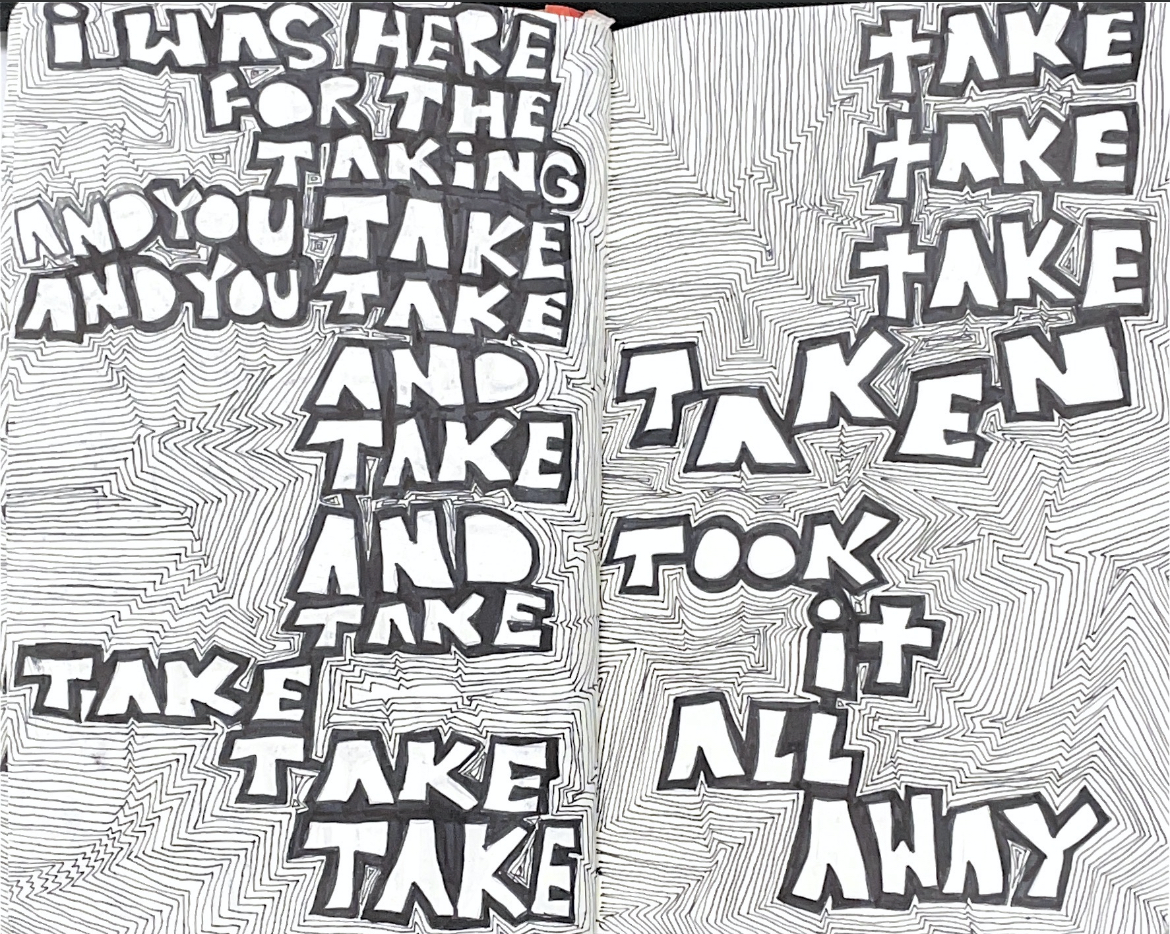 i WAS HERE
FOR THE
TAKiNG
AND YOU TAKE
AND YOU TAKE
AND
TAKE
AND
TAKE
TAKE
TAKE
TAKE
tAKE
tAKE
tAKE
TAKEN
TOOK
it
ALL
AWAY